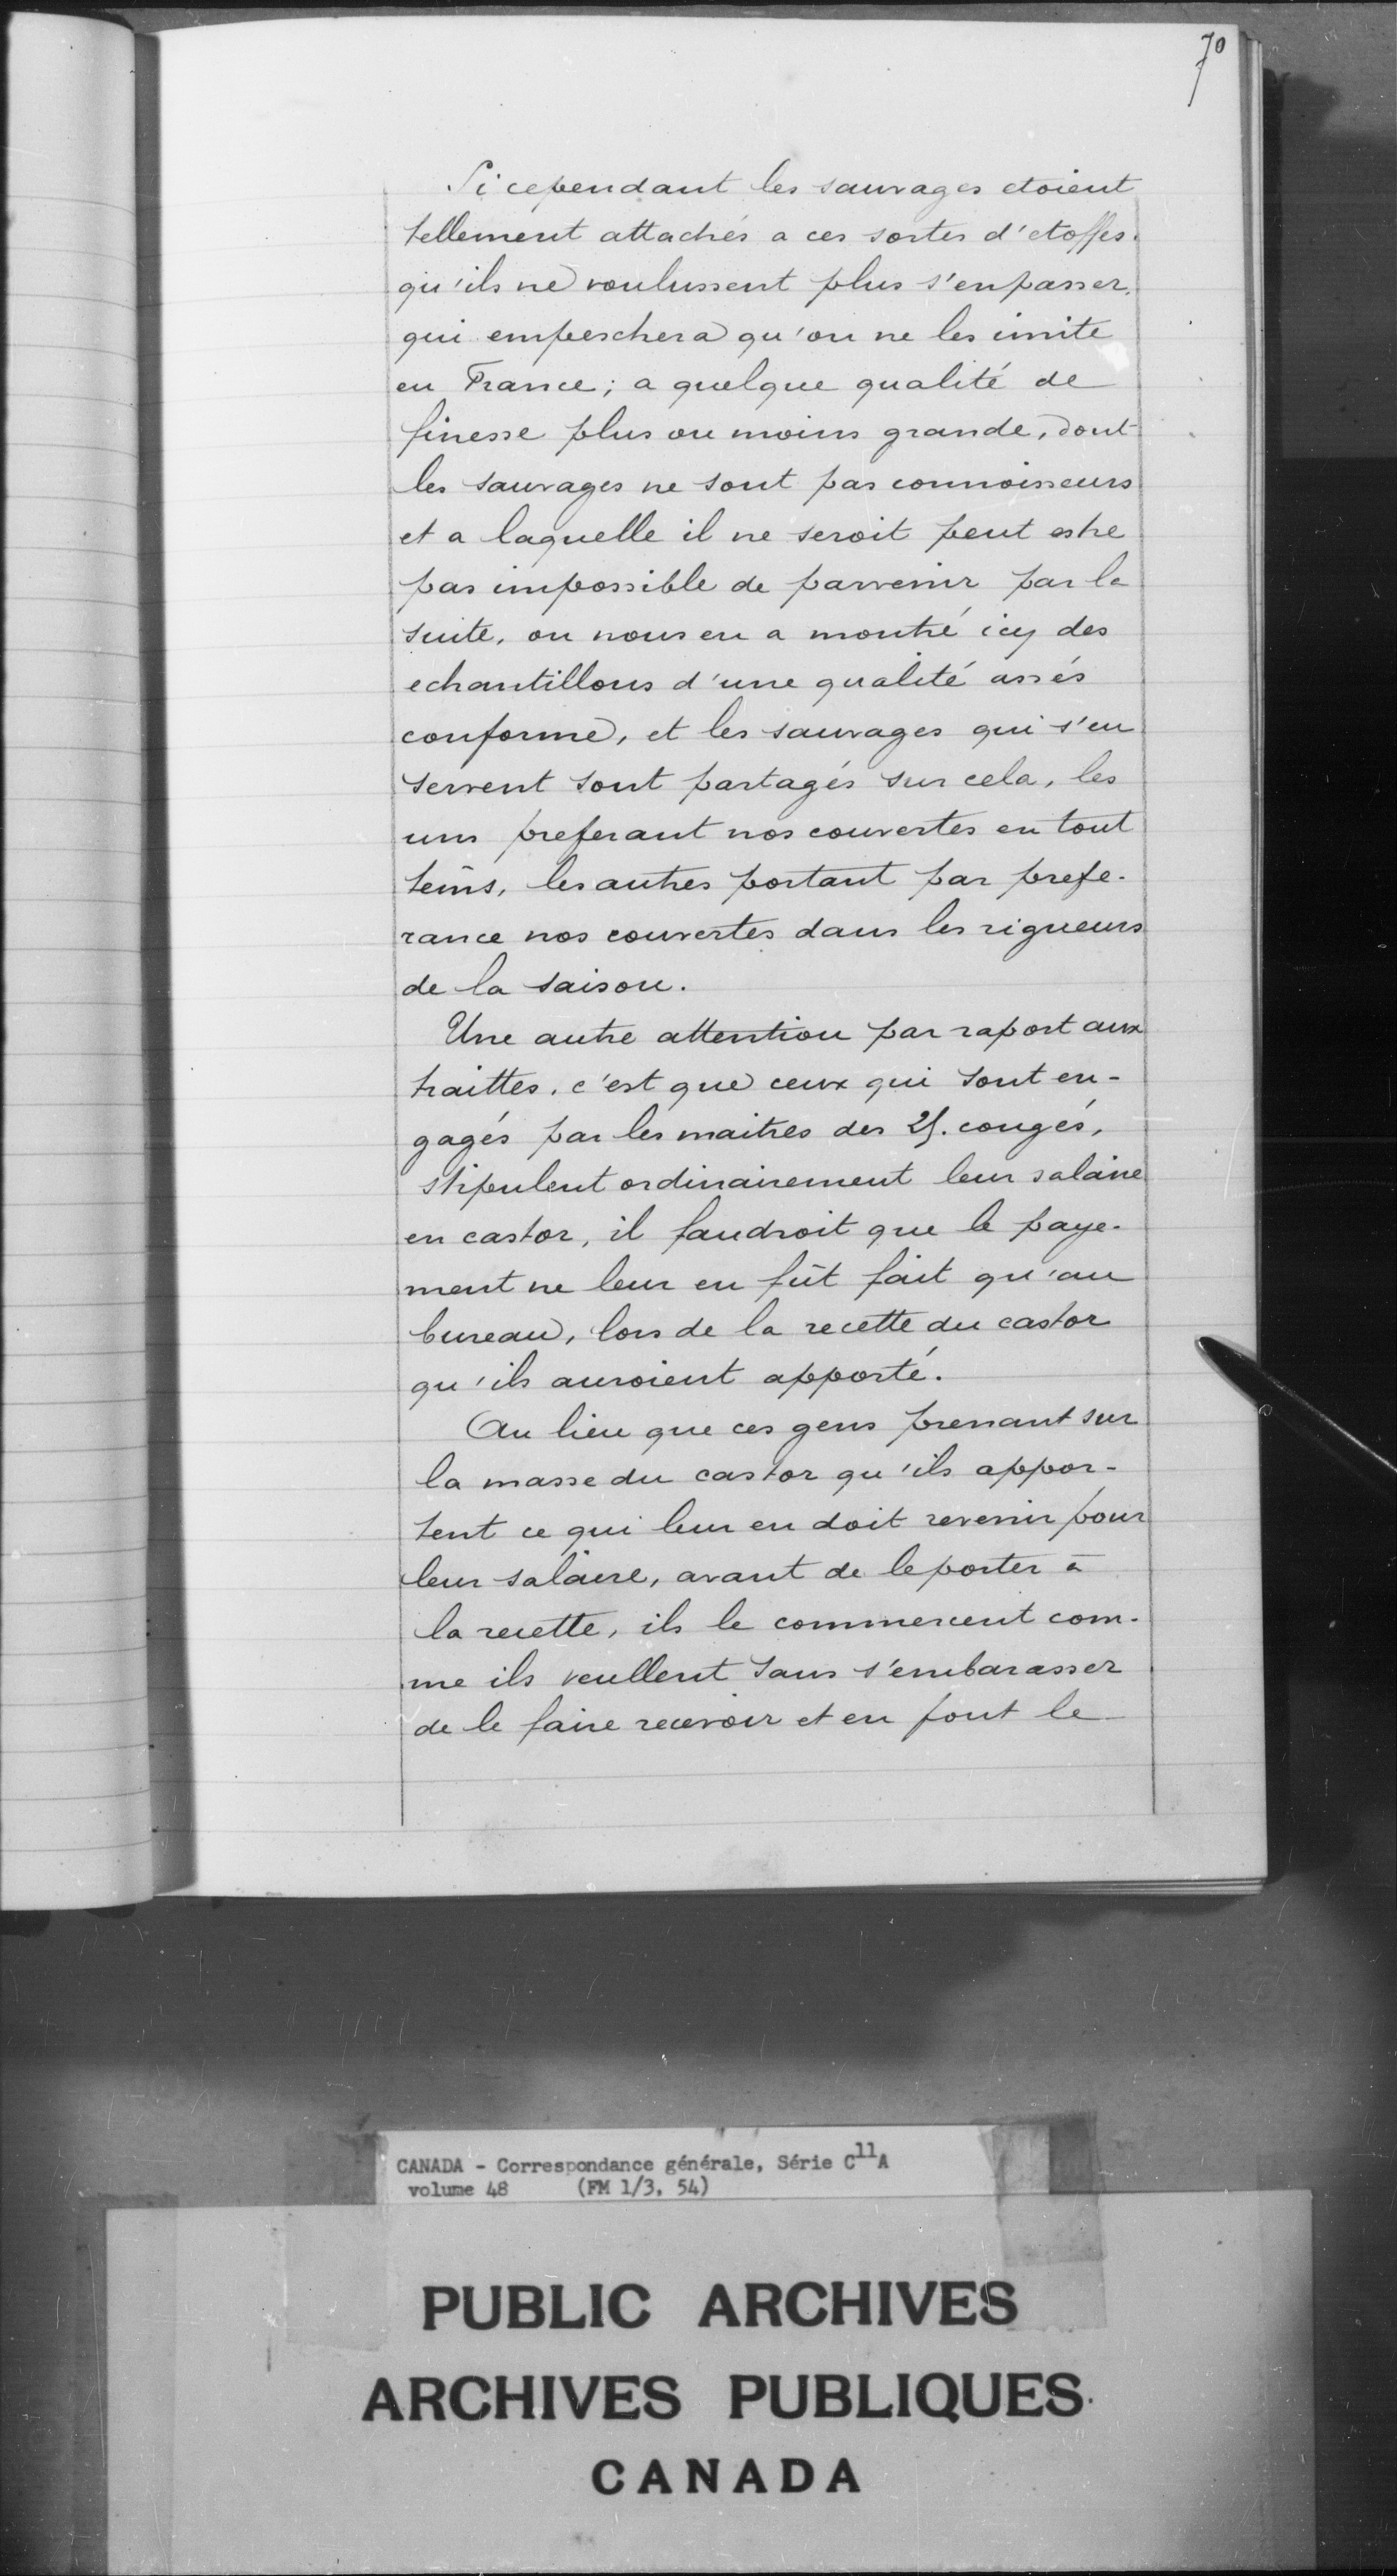 70
Si cependant les sauvages etoient
tellement attachés a ces sortes d'etoffes.
qu'ils ne voulussent plus s'en passer,
qui empeschera qu'on ne les imite
en France; a quelque qualité de
finesse plus ou moins grande, dont
les sauvages ne sont pas connoisseurs
et a laquelle il ne seroit peut estre
pas impossible de parvenir par la
suite, on nous en a montré icy des
echantillons d'une qualité assés
conforme, et les sauvages qui s'en
servent sont partagés sur cela, les
uns preferant nos couvertes en tout
tems, les autres portant par prefe-
rance nos couvertes dans les rigueurs
de la saison.
Une autre attention par raport aux
traittes. c'est que ceux qui sont en-
gagés par les maitres des 25. congés,
stipulent ordinairement leur salaire
en castor, il faudroit que le paye-
ment ne leur en fût fait qu'au
bureau, lors de la recette du castor
qu'ils auroient apporté.
Au lieu que ces gens prenant sur
la masse du castor qu'ils appor-
tent ce qui leur en doit revenir pour
leur salaire, avant de le porter à
la recette, ils le commercent com-
me ils veullent sans s'embarasser
de le faire recevoir et en font le
CANADA - Correspondance générale, Série C11A
volume 48 (FM 1/3, 54)
PUBLIC ARCHIVES
ARCHIVES PUBLIQUES
CANADA